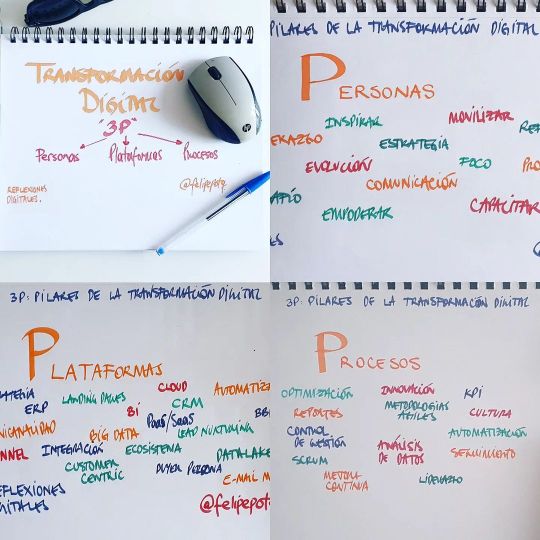 TRANSFORMACIÓN
DIGITAL
"3P"
Personas Plataformas Procesos
REFLEXIONES
DIGITALES.
@felipepote
hp
PILARES DE LA TRANSFORMACIÓN DIGITAL
PERSONAS
INSPIRAR MOVILIZAR
ERAZGO ESTRATEGIA
EVOLUCIÓN FOCO
COMUNICACIÓN
EMPODERAR CAPACITAR
3P: PILARES DE LA TRANSFORMACIÓN DIGITAL
PLATAFORMAS
CLOUD AUTOMATIZA
ERP LANDING PAGES BI CRM
NICANALIDAD BIG DATA PAAS/SAAS LEAD NURTURING
NNEL INTEGRACIÓN ECOSISTEMA DATA-LAKE
CUSTOMER
CENTRIC BUYER PERSONA E-MAIL M
EFLEXIONES
IGITALES @felipepot
3P: PILARES DE LA TRANSFORMACIÓN DIGITAL
PROCESOS
OPTIMIZACIÓN INNOVACIÓN KPI
REPORTES METODOLOGÍAS
ÁGILES CULTURA
CONTROL
DE GESTIÓN ANÁLISIS
DE DATOS AUTOMATIZACIÓN
SCRUM SEGUIMIENTO
MEJORA
CONTINUA LIDERAZGO